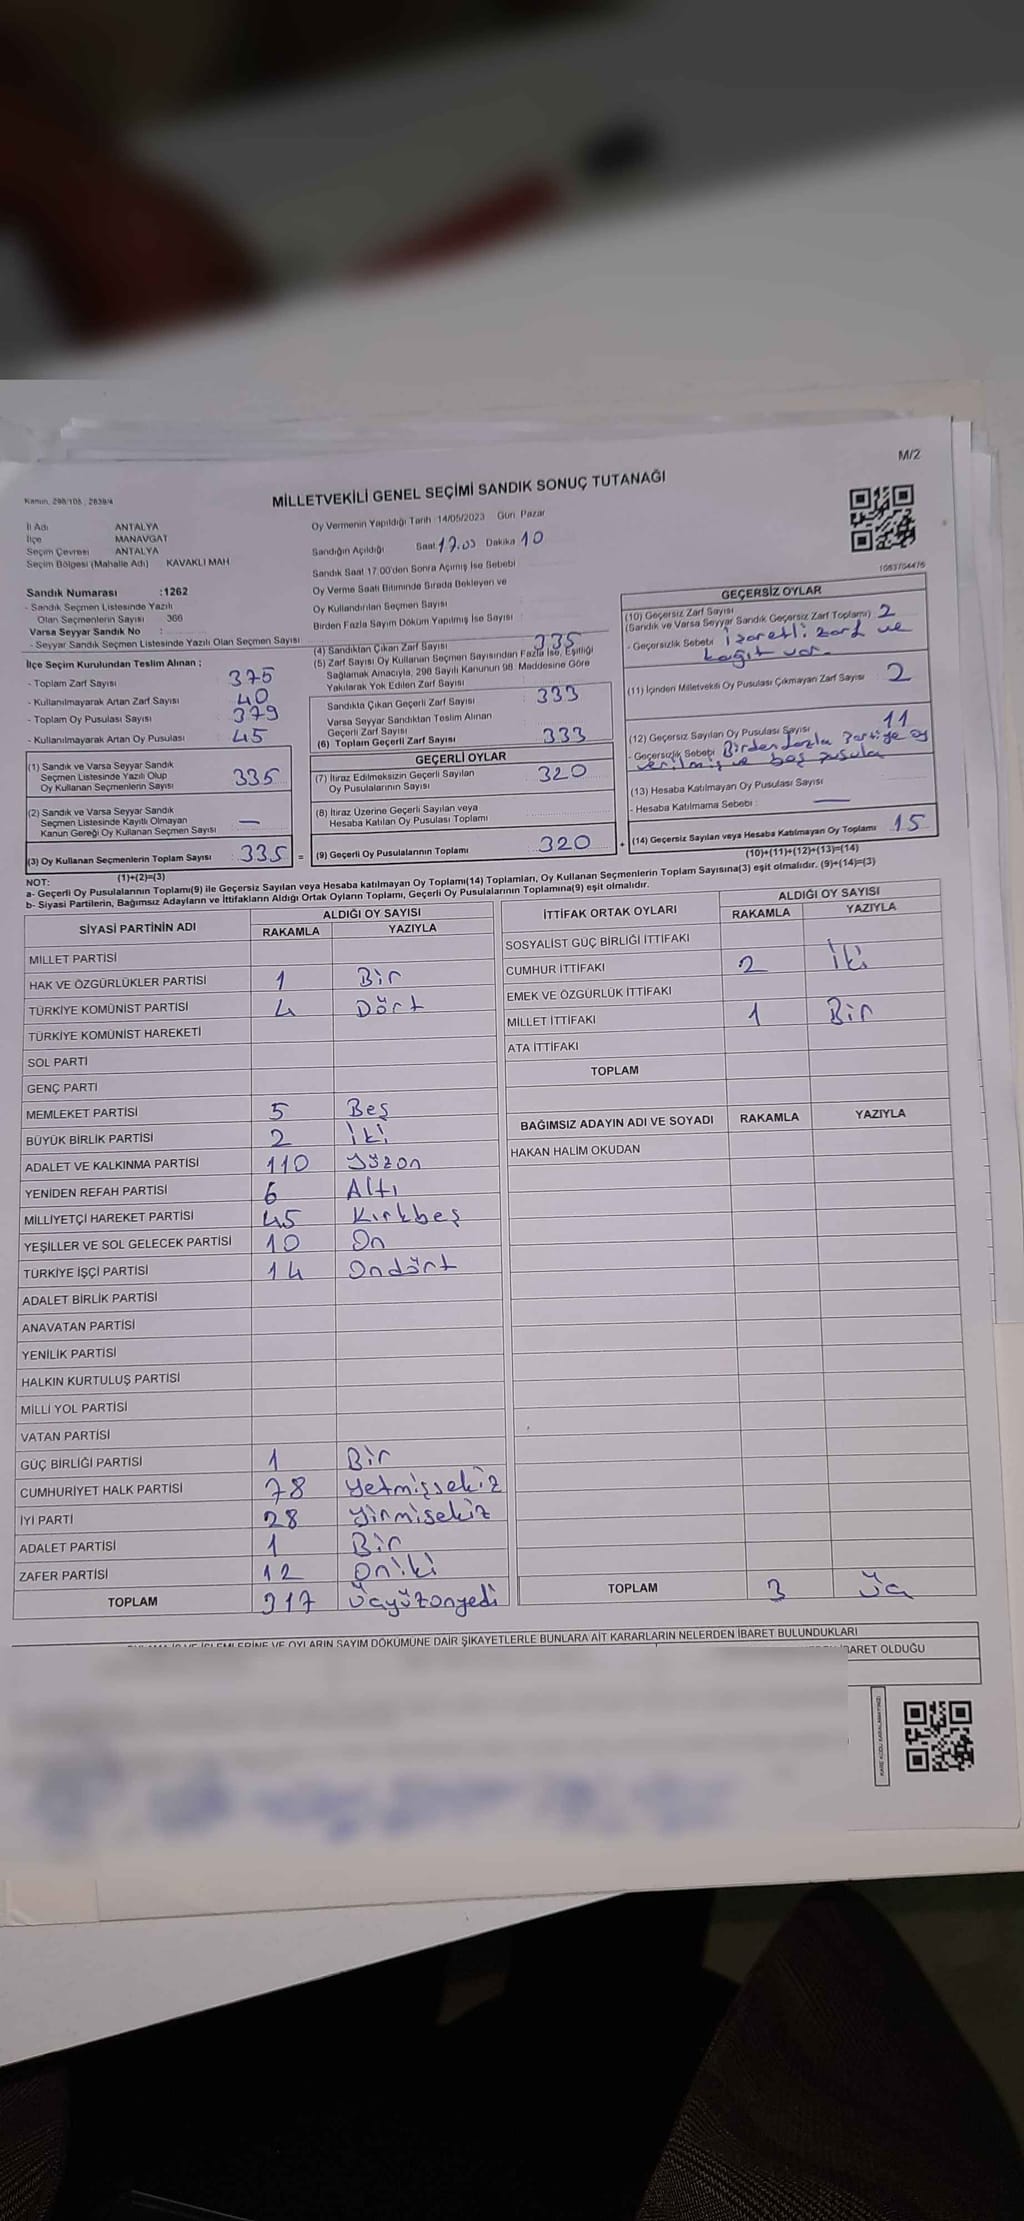 M/2
Kanun, 298/108 , 2839/4
MİLLETVEKİLİ GENEL SEÇİMİ SANDIK SONUÇ TUTANAĞI
İl Adı ANTALYA
İlçe MANAVGAT
Seçim Çevresi ANTALYA
Seçim Bölgesi (Mahalle Adı) KAVAKLI MAH
Sandık Numarası :1262
- Sandık Seçmen Listesinde Yazılı
Olan Seçmenlerin Sayısı 366
Varsa Seyyar Sandık No :
- Seyyar Sandık Seçmen Listesinde Yazılı Olan Seçmen Sayısı
İlçe Seçim Kurulundan Teslim Alınan ;
- Toplam Zarf Sayısı 375
- Kullanılmayarak Artan Zarf Sayısı 40
- Toplam Oy Pusulası Sayısı 379
- Kullanılmayarak Artan Oy Pusulası 45
(1) Sandık ve Varsa Seyyar Sandık
Seçmen Listesinde Yazılı Olup
Oy Kullanan Seçmenlerin Sayısı 335
(2) Sandık ve Varsa Seyyar Sandık
Seçmen Listesinde Kayıtlı Olmayan
Kanun Gereği Oy Kullanan Seçmen Sayısı —
(3) Oy Kullanan Seçmenlerin Toplam Sayısı 335 =
(1)+(2)=(3)
Oy Vermenin Yapıldığı Tarih :14/05/2023 Gün: Pazar
Sandığın Açıldığı Saat 17.00 Dakika 10
Sandık Saat 17:00'den Sonra Açımış İse Sebebi
Oy Verme Saati Bitiminde Sırada Bekleyen ve
Oy Kullandırılan Seçmen Sayısı
Birden Fazla Sayım Döküm Yapılmış İse Sayısı :
(4) Sandıktan Çıkan Zarf Sayısı 335
(5) Zarf Sayısı Oy Kullanan Seçmen Sayısından Fazla İse, Eşitliği
Sağlamak Amacıyla, 298 Sayılı Kanunun 98. Maddesine Göre
Yakılarak Yok Edilen Zarf Sayısı
Sandıkta Çıkan Geçerli Zarf Sayısı 333
Varsa Seyyar Sandıktan Teslim Alınan
Geçerli Zarf Sayısı
(6) Toplam Geçerli Zarf Sayısı 333
GEÇERLİ OYLAR
(7) İtiraz Edilmeksizin Geçerli Sayılan
Oy Pusulalarının Sayısı 320
(8) İtiraz Üzerine Geçerli Sayılan veya
Hesaba Katılan Oy Pusulası Toplamı
(9) Geçerli Oy Pusulalarının Toplamı 320 +
1083704476
GEÇERSİZ OYLAR
(10) Geçersiz Zarf Sayısı
(Sandık ve Varsa Seyyar Sandık Geçersiz Zarf Toplamı) 2
- Geçersizlik Sebebi İşaretli zarf ve
kağıt var.
(11) İçinden Milletvekili Oy Pusulası Çıkmayan Zarf Sayısı 2
(12) Geçersiz Sayılan Oy Pusulası Sayısı 11
- Geçersizlik Sebebi Birden fazla Partiye oy
verilmiş ve boş pusula
(13) Hesaba Katılmayan Oy Pusulası Sayısı
- Hesaba Katılmama Sebebi : —
(14) Geçersiz Sayılan veya Hesaba Katılmayan Oy Toplamı 15
(10)+(11)+(12)+(13)=(14)
NOT:
a- Geçerli Oy Pusulalarının Toplamı(9) ile Geçersiz Sayılan veya Hesaba katılmayan Oy Toplamı(14) Toplamları, Oy Kullanan Seçmenlerin Toplam Sayısına(3) eşit olmalıdır. (9)+(14)=(3)
b- Siyasi Partilerin, Bağımsız Adayların ve İttifakların Aldığı Ortak Oyların Toplamı, Geçerli Oy Pusulalarının Toplamına(9) eşit olmalıdır.
SİYASİ PARTİNİN ADI ALDIĞI OY SAYISI
RAKAMLA YAZIYLA
MİLLET PARTİSİ
HAK VE ÖZGÜRLÜKLER PARTİSİ 1 Bir
TÜRKİYE KOMÜNİST PARTİSİ 4 Dört
TÜRKİYE KOMÜNİST HAREKETİ
SOL PARTİ
GENÇ PARTİ
MEMLEKET PARTİSİ 5 Beş
BÜYÜK BİRLİK PARTİSİ 2 İki
ADALET VE KALKINMA PARTİSİ 110 Yüzon
YENİDEN REFAH PARTİSİ 6 Altı
MİLLİYETÇİ HAREKET PARTİSİ 45 Kırkbeş
YEŞİLLER VE SOL GELECEK PARTİSİ 10 On
TÜRKİYE İŞÇİ PARTİSİ 14 Ondört
ADALET BİRLİK PARTİSİ
ANAVATAN PARTİSİ
YENİLİK PARTİSİ
HALKIN KURTULUŞ PARTİSİ
MİLLİ YOL PARTİSİ
VATAN PARTİSİ
GÜÇ BİRLİĞİ PARTİSİ 1 Bir
CUMHURİYET HALK PARTİSİ 78 Yetmişsekiz
İYİ PARTİ 28 Yirmisekiz
ADALET PARTİSİ 1 Bir
ZAFER PARTİSİ 12 Oniki
TOPLAM 317 Üçyüzonyedi
İTTİFAK ORTAK OYLARI ALDIĞI OY SAYISI
RAKAMLA YAZIYLA
SOSYALİST GÜÇ BİRLİĞİ İTTİFAKI
CUMHUR İTTİFAKI 2 İki
EMEK VE ÖZGÜRLÜK İTTİFAKI
MİLLET İTTİFAKI 1 Bir
ATA İTTİFAKI
TOPLAM
BAĞIMSIZ ADAYIN ADI VE SOYADI RAKAMLA YAZIYLA
HAKAN HALİM OKUDAN
TOPLAM 3 Üç
İŞLEMLERİNE VE OYLARIN SAYIM DÖKÜMÜNE DAİR ŞİKAYETLERLE BUNLARA AİT KARARLARIN NELERDEN İBARET BULUNDUKLARI
İBARET OLDUĞU
KARE KODU KARALAMAYINIZ!